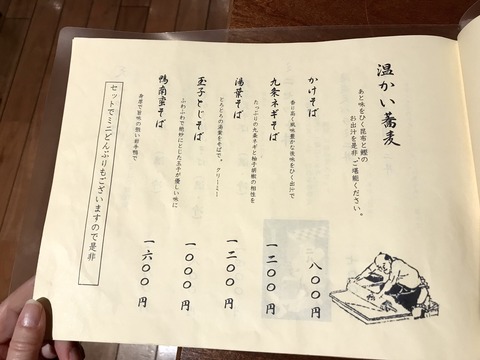 温かい蕎麦
あと味をひく昆布と鰹の
お出汁を是非、ご堪能ください。
かけそば
香り高く風味豊かな後味をひく出汁で
八〇〇円
九条ネギそば
たっぷりの九条ネギと柚子胡椒の相性を
一二〇〇円
湯葉そば
とろとろの湯葉をそばで。クリーミー
一二〇〇円
玉子とじそば
ふわふわで絶妙にとじた玉子が優しい味に
一〇〇〇円
鴨南蛮そば
身厚で旨味の強い岩手鴨で
一六〇〇円
セットでミニどんぶりもございますので是非